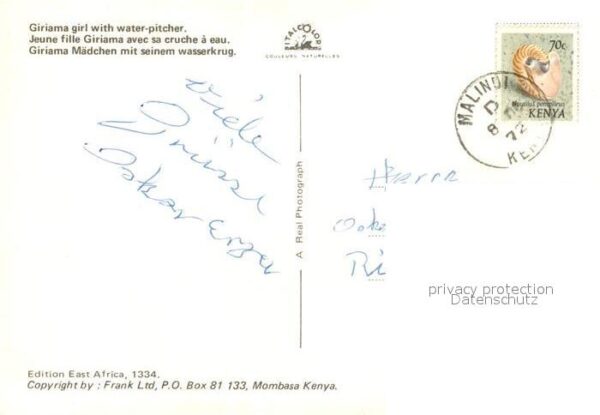 Giriama girl with water-pitcher.
Jeune fille Giriama avec sa cruche à eau.
Giriama Mädchen mit seinem wasserkrug.
ITALCOLOR
COULEURS NATURELLES
70c
Nautilus pompilius
KENYA
MALINDI
D
8
72
KEN
Viele
Grüsse
Oskar
Herrn
Ri
A Real Photograph
privacy protection
Datenschutz
Edition East Africa, 1334.
Copyright by : Frank Ltd, P.O. Box 81 133, Mombasa Kenya.